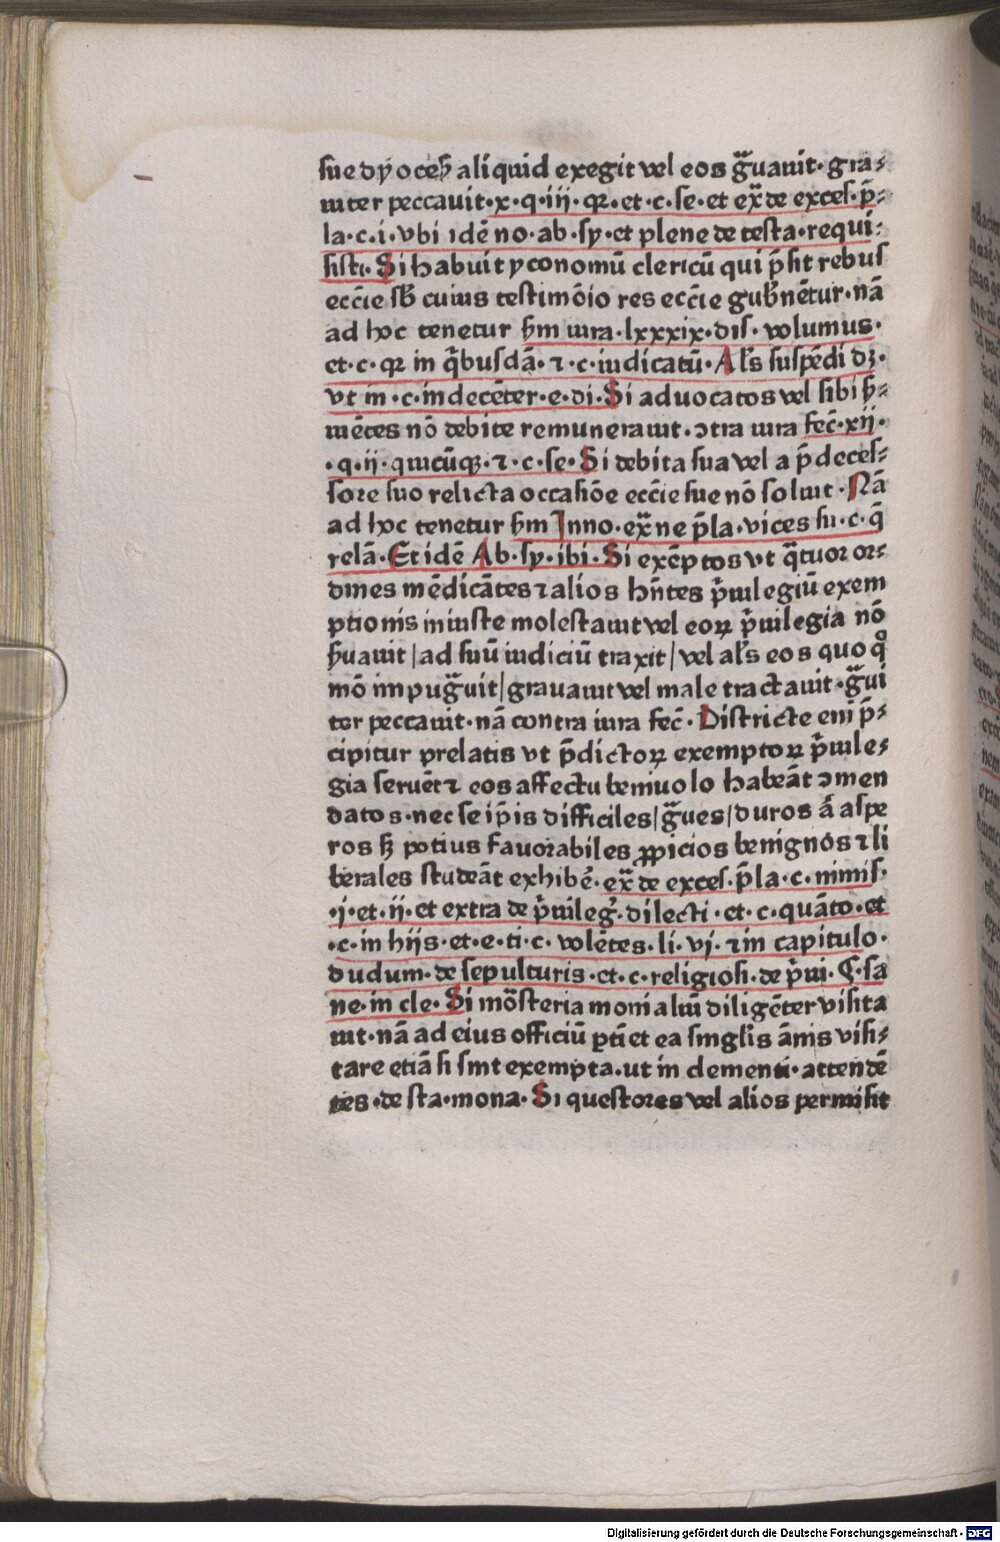 sue dyoceſ aliquid exegit vel eos g̃uauit· gra⸗
uiter peccauit·x·q·iij·qꝛ·et·c·se·et ex̃ de exceſ·p̃⸗
la·c·i·vbi idē no·ab·ſy·et plene de teſta·requi⸗
ſiſti·Si habuit yconomū clericū qui p̃ſit rebuſ
ecc̄ie ſb̄ cuius teſtimōio res ecc̄ie gub̄nētur·nā
ad hoc tenetur ẜm iura·lxxxix·diſ·volumus·
et·c·qꝛ in q̄buſdā·⁊·c·iudicatū·Alr̄s ſuſpēdi dꝫ·
vt in·c·indecēter·e·di·Si aduocatos vel ſibi ẜ⸗
uiētes nō debite remunerauit·ↄtra iura fec̄·xij·
·q·ij·quicūqꝫ·⁊·c·ſe·Si debita ſua vel a p̄deceſ⸗
ſore ſuo relicta occaſiōe ecc̄ie ſue nō ſoluit·Nā
ad hoc tenetur ẜm Inno·ex̃ ne p̄la·vices ſu·c·q̄
relā·Et idē Ab·ſy·ibi·Si exēptos vt q̄tuor or⸗
dines mēdicātes ⁊ alios hn̄tes p̄uilegiū exem
ptionis iniuſte moleſtauit vel eoꝝ p̄uilegia nō
ẜuauit/ad ſuū iudiciū traxit/vel alr̄s eos quo qͦ
mō impug̃uit/grauauit vel male tractauit·g̃ui
ter peccauit·nā contra iura fec̄·Diſtricte eni p̄⸗
cipitur prelatis vt p̄dictoꝝ exemptoꝝ p̄uile⸗
gia ſeruēt ⁊ eos affectu beniuolo habeāt ↄmen
datos·nec ſe ip̄is difficiles/g̃ues/duros ā aſpe
ros ſꝫ potius fauorabiles ꝓpicios benignos ⁊ li
berales ſtudeāt exhibē·ex̃ de exceſ·p̄la·c·nimiſ·
·j·et·ij·et extra de p̄uileg̃·dilecti·et·c·quāto·et
·c·in hijs·et·e·ti·c·volētes·li·vj·⁊ in capitulo·
dudum·de ſepulturis·et·c·religioſi·de p̄ui·¶·ſa
ne·in cle·Si mōſteria monialiū diligēter viſita
uit·nā ad eius officiū ꝑtiet ea ſingĺis ānis viſi⸗
tare etiā ſi ſint exempta·ut in clementi·attendē
tes·de ſta·mona·Si queſtores vel alios permiſit
Digitalisierung gefördert durch die Deutsche Forschungsgemeinschaft · DFG